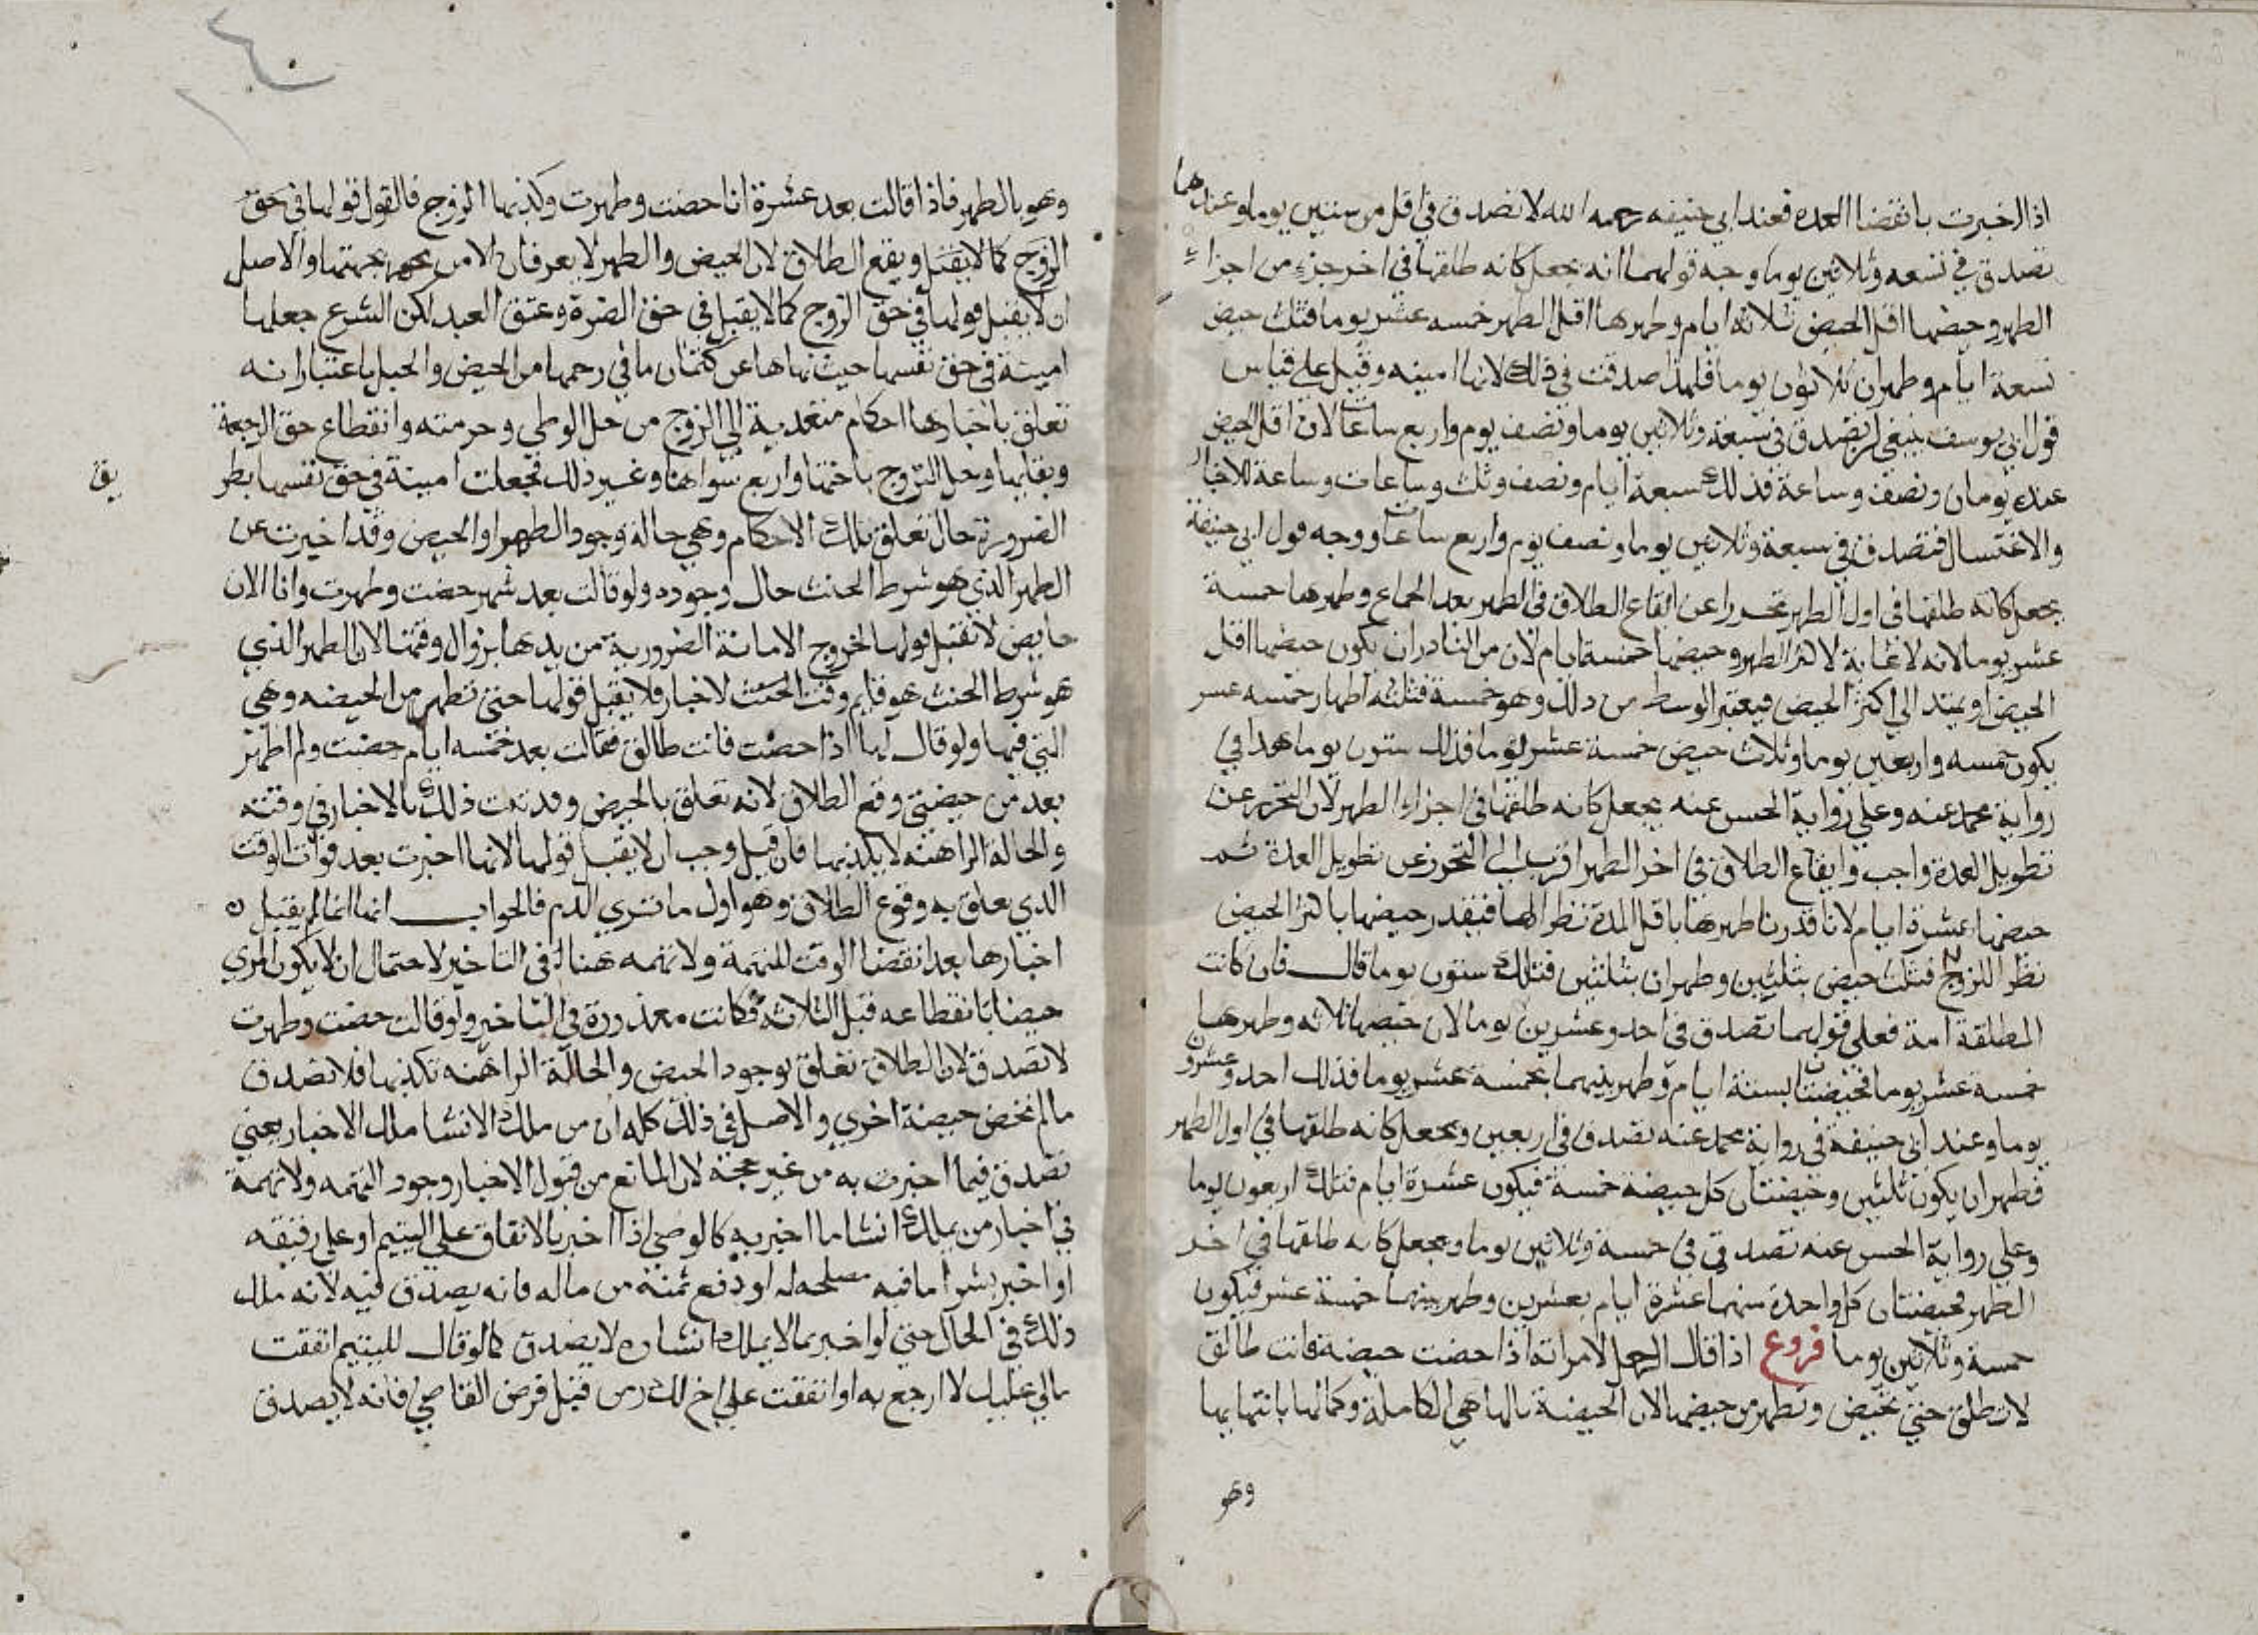 اذا اخبرت بانقضا العده فعند ابي حنيفه رحمه الله لا تصدق في اقل من ستين يوما وعندهما
تصدق في تسعه وثلاثين يوما وجه قولهما انه يجعل كانه طلقها في اخر جزء من اجزاء
الطهر وحيضها اقل الحيض ثلاثه ايام وطهرها اقل الطهر خمسه عشر يوما فثلث حيض
تسعة ايام وطهران ثلاثون يوما فلهذا صدقت في ذلك لانها امينه وقيل علي قياس
قول ابي يوسف ينبغي ان تصدق في سبعة وثلاثين يوما ونصف يوم واربع ساعات لان اقل الحيض
عنده يومان ونصف وساعة فذلك سبعة ايام ونصف وثلث وساعات وساعة للاخبار
والاغتسال فتصدق في سبعة وثلاثين يوما ونصف يوم واربع ساعات ووجه قول ابي حنيفة
يجعل كانه طلقها في اول الطهر تحررا عن ايقاع الطلاق في الطهر بعد الجماع وطهرها خمسة
عشر يوما لانه لا غاية لاكثر الطهر وحيضها خمسة ايام لان من النادر ان يكون حيضها اقل
الحيض او يمتد الي اكثر الحيض فيعتبر الوسط من ذلك وهو خمسة فثلثه اطهار خمسه عشر
يكون خمسه واربعين يوما وثلاث حيض خمسة عشر يوما فذلك ستون يوما هذا في
رواية محمد عنه وعلي رواية الحسن عنه يجعل كانه طلقها في اجزاء الطهر لان التحرز عن
تطويل العدة واجب وايقاع الطلاق في اخر الطهر اقرب الي التحرز عن تطويل العدة ثم
حيضها عشرة ايام لانا قدرنا طهرها باقل المدة نظرا لها فيقدر حيضها باكثر الحيض
نظرا للزوج فثلث حيض بثلثين وطهران بثلثين فتلك ستون يوما قال فان كانت
المطلقة امة فعلي قولهما تصدق في احد وعشرين يوما لان حيضها ثلاثه وطهرها
خمسة عشر يوما فحيضتان بستة ايام وطهر بينهما بخمسة عشر يوما فذلك احد وعشرون
يوما وعند ابي حنيفة في رواية محمد عنه تصدق في اربعين ويجعل كانه طلقها في اول الطهر
فطهران يكون ثلثين وحيضتان كل حيضه خمسة فيكون عشرة ايام فتلك اربعون يوما
وعلي رواية الحسن عنه تصدق في خمسة وثلاثين يوما ويجعل كانه طلقها في اخر
الطهر فحيضتان كل واحدة منهما عشرة ايام بعشرين وطهر بينهما خمسة عشر فيكون
خمسة وثلاثين يوما فروع اذا قال الرجل لامراته اذا حضت حيضة فانت طالق
لا تطلق حتي تحيض وتطهر من حيضها لان الحيضة بالها هي الكاملة وكمالها بانتهايها
وهو
وهو بالطهر فاذا قالت بعد عشرة انا حضت وطهرت وكذبها الزوج فالقول قولها في حق
الزوج كما لا يقبل ويقع الطلاق لان الحيض والطهر لا يعرفان الا من جهتها والاصل
ان لا يقبل قولها في حق الزوج كما لا يقبل في حق الضرة وعتق العبد لكن الشرع جعلها
امينة في حق نفسها حيث نهاها عن كتمان ما في رحمها من الحيض والحبل باعتبار انه
تعلق باخبارها احكام متعدية الي الزوج من حل الوطي وحرمته وانقطاع حق الرجعة
وبقايها وحل التزوج باختها واربع سواها وغير ذلك فجعلت امينة في حق نفسها بطر
يق
الضرورة حال تعلق تلك الاحكام وهي حالة وجود الطهر او الحيض وقد اخبرت عن
الطهر الذي هو شرط الحنث حال وجوده ولو قالت بعد شهر حضت وطهرت وانا الان
حايض لا تقبل قولها لخروج الامانة الضرورية من يدها بزوال وقتها لان الطهر الذي
هو شرط الحنث هو قايم وقت الحنث لاخبار فلا يقبل قولها حتي تطهر من الحيضه وهي
التي فيها ولو قال لها اذا حضت فانت طالق فقالت بعد خمسه ايام حضت ولم اطهر
بعد من حيضتي وقع الطلاق لانه تعلق بالحيض وقد ثبت ذلك بالاخبار في وقته
والحالة الراهنة لا يكذبها فان قيل وجب ان لا يقبل قولها لانها اخبرت بعد فوات الوقت
الذي يعلق به وقوع الطلاق وهو اول ما تري الدم فالجواب انها انما لم يقبل
اخبارها بعد انقضا الوقت للتهمة ولا تهمه هناك في التاخير لاحتمال ان لا يكون المري
حيضا بانقطاعه قبل الثلاثة فكانت معذورة في التاخير ولو قالت حضت وطهرت
لا تصدق لان الطلاق تعلق بوجود الحيض والحالة الراهنه تكذبها فلا تصدق
ما لم تحض حيضة اخري والاصل في ذلك كله ان من ملك الانشا ملك الاخبار يعني
تصدق فيما اخبرت به من غير حجة لان المانع من قبول الاخبار وجود التهمه ولا تهمة
في اخبار من يملك انشا ما اخبر به كالوصي اذا اخبر بالانفاق علي اليتيم او علي رقيقه
او اخبر بشرا ما فيه مصلحه له او دفع ثمنه من ماله فانه يصدق فيه لانه ملك
ذلك في الحال حتي لو اخبر بما لا يملك انشاه لا يصدق كما لو قال لليتيم انفقت
مالي عليك لا ارجع به او انفقت علي اخ لك من قبل فرض القاضي فانه لا يصدق